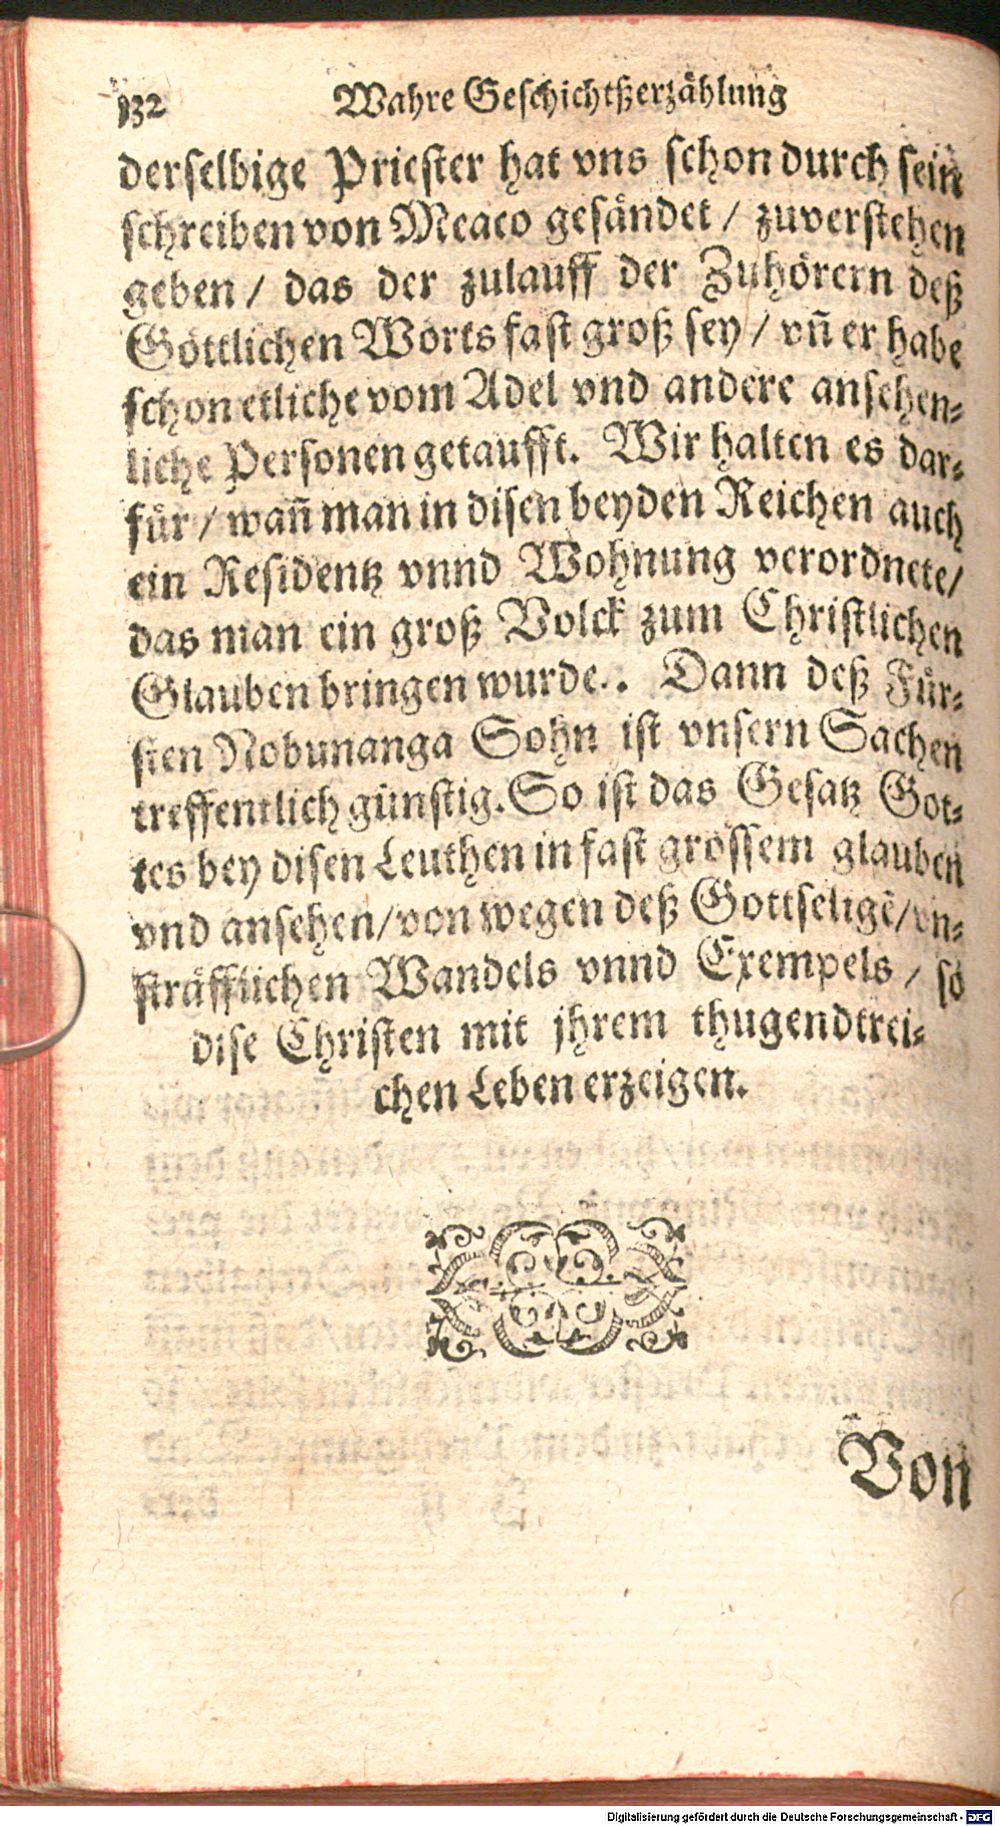 132 Wahre Geschichtßerzählung
derselbige Priester hat vns schon durch sein
schreiben von Meaco gesändet / zuverstehen
geben / das der zulauff der Zuhörern deß
Göttlichen Worts fast groß sey / vñ er habe
schon etliche vom Adel vnd andere ansehen-
liche Personen getaufft. Wir halten es dar-
für / wañ man in disen beyden Reichen auch
ein Residentz vnnd Wohnung verordnete /
das man ein groß Volck zum Christlichen
Glauben bringen wurde.. Dann deß Für-
sten Nobunanga Sohn ist vnsern Sachen
treffentlich günstig. So ist das Gesatz Got-
tes bey disen Leuthen in fast grossem glauben
vnd ansehen / von wegen deß Gottseligẽ / vn-
sträfflichen Wandels vnnd Exempels / so
dise Christen mit jhrem thugendtrei-
chen Leben erzeigen.
Von
Digitalisierung gefördert durch die Deutsche Forschungsgemeinschaft - DFG